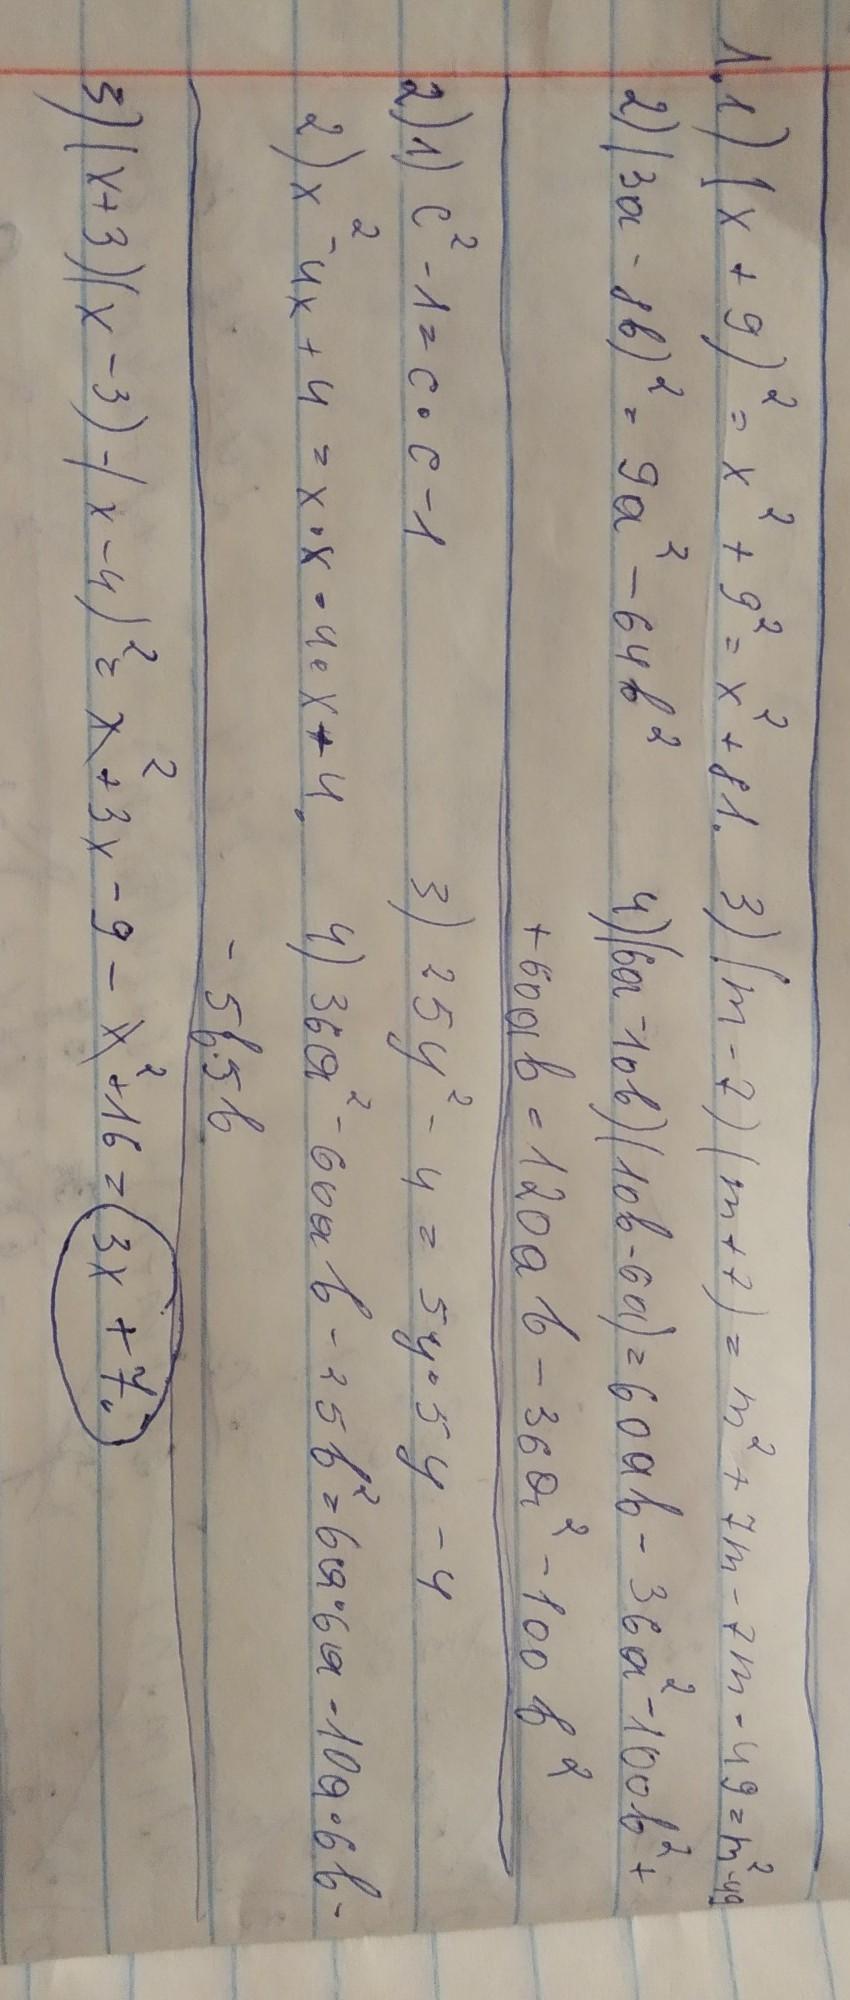 1.1) (x + 9)² = x² + 9² = x² + 81. 3) (m - 7)(m + 7) = m² + 7m - 7m - 49 = m² - 49
2) (3a - 8b)² = 9a² - 64b² 4) (6a - 10b)(10b - 6a) = 60ab - 36a² - 100b² +
+ 60ab = 120ab - 36a² - 100b²
2) 1) c² - 1 = c • c - 1 3) 25y² - 4 = 5y • 5y - 4
2) x² - 4x + 4 = x • x - 4 • x + 4. 4) 36a² - 60ab - 25b² = 6a • 6a - 10a • 6b -
- 5b • 5b
3) (x + 3)(x - 3) - (x - 4)² = x² + 3x - 9 - x² + 16 = 3x + 7.